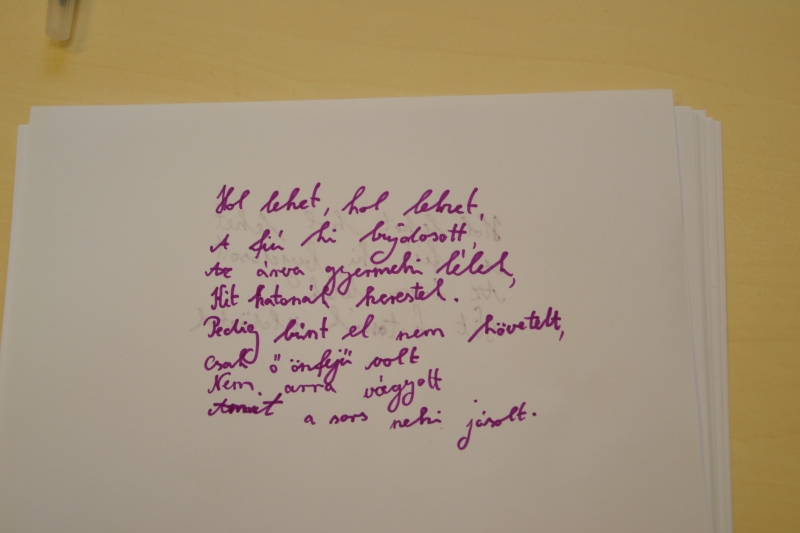 Hol lehet, hol lehet,
A fiú ki bujdosott,
Az árva gyermeki lélek,
Kit katonák kerestek.
Pedig bűnt el nem követett,
csak ő önfejű volt
Nem arra vágyott
Amit a sors neki jósolt.